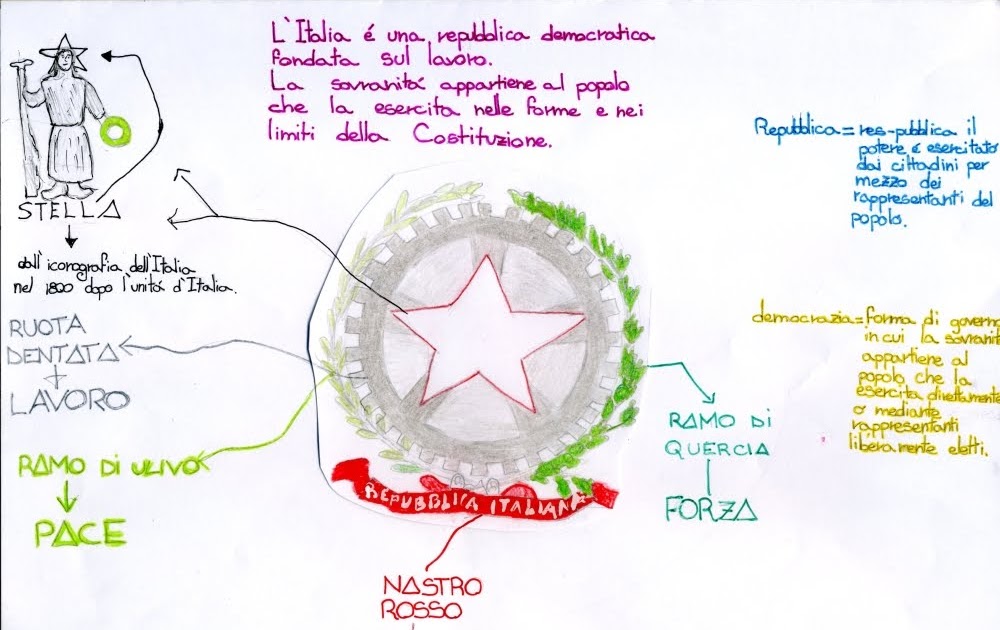 L'Italia é una repubblica democratica
fondata sul lavoro.
La sovranitá appartiene al popolo
che la esercita nelle forme e nei
limiti della Costituzione.
STELLA
dall'iconografia dell'Italia
nel 1820 dopo l'unitá d'Italia.
RUOTA
DENTATA
LAVORO
RAMO DI ULIVO
PACE
REPUBBLICA ITALIANA
NASTRO
ROSSO
RAMO DI
QUERCIA
FORZA
Repubblica = res-pubblica il
potere é esercitato
dai cittadini per
mezzo dei
rappresentanti del
popolo.
democrazia = forma di govern
in cui la sovranit
appartiene al
popolo che la
esercita direttamente
o mediante
rappresentanti
liberamente eletti.